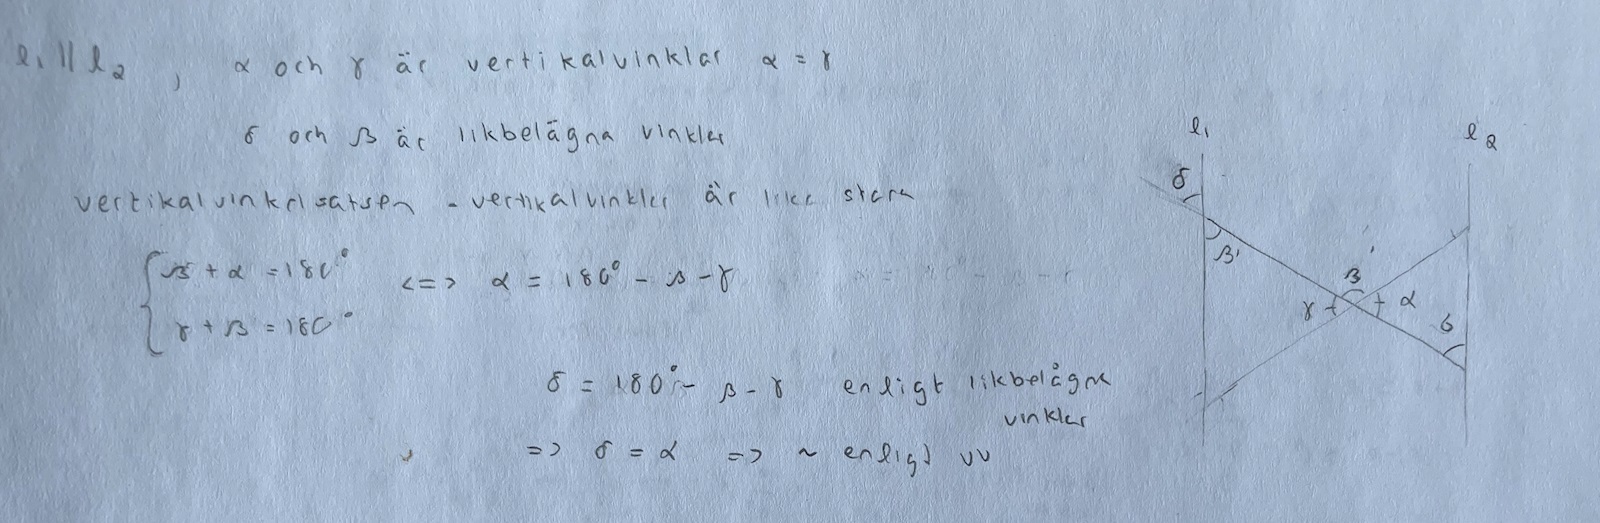 l₁ ∥ l₂ , α och γ är vertikalvinklar α = γ
δ och β är likbelägna vinklar
vertikalvinkelsatsen - vertikalvinklar är lika stora
β + α = 180° <=> α = 180° - β - γ
γ + β = 180°
δ = 180° - β - γ enligt likbelägna
vinklar
=> δ = α => ~ enligt vv
l₁
l₂
δ
β'
β
γ
α
δ